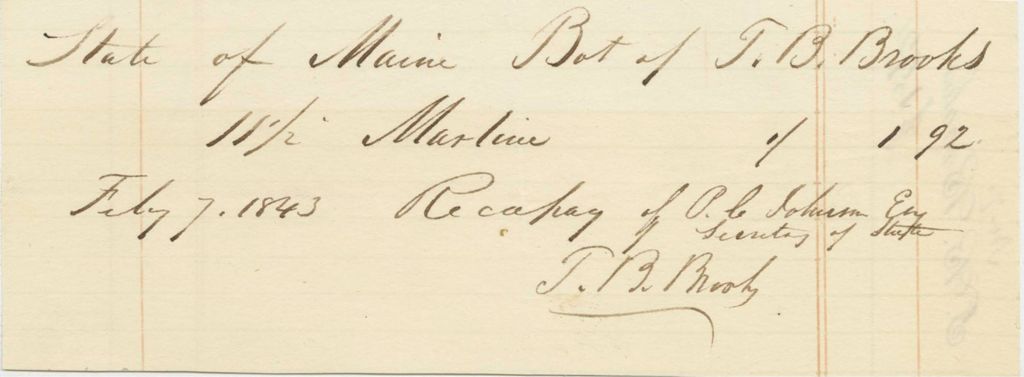 State of Maine Bot of T. B. Brooks
11 1/2 Marline 1 92
Feby 7. 1843 Rec pay of P. C Johnson Esq
Secretary of State
T. B. Brooks